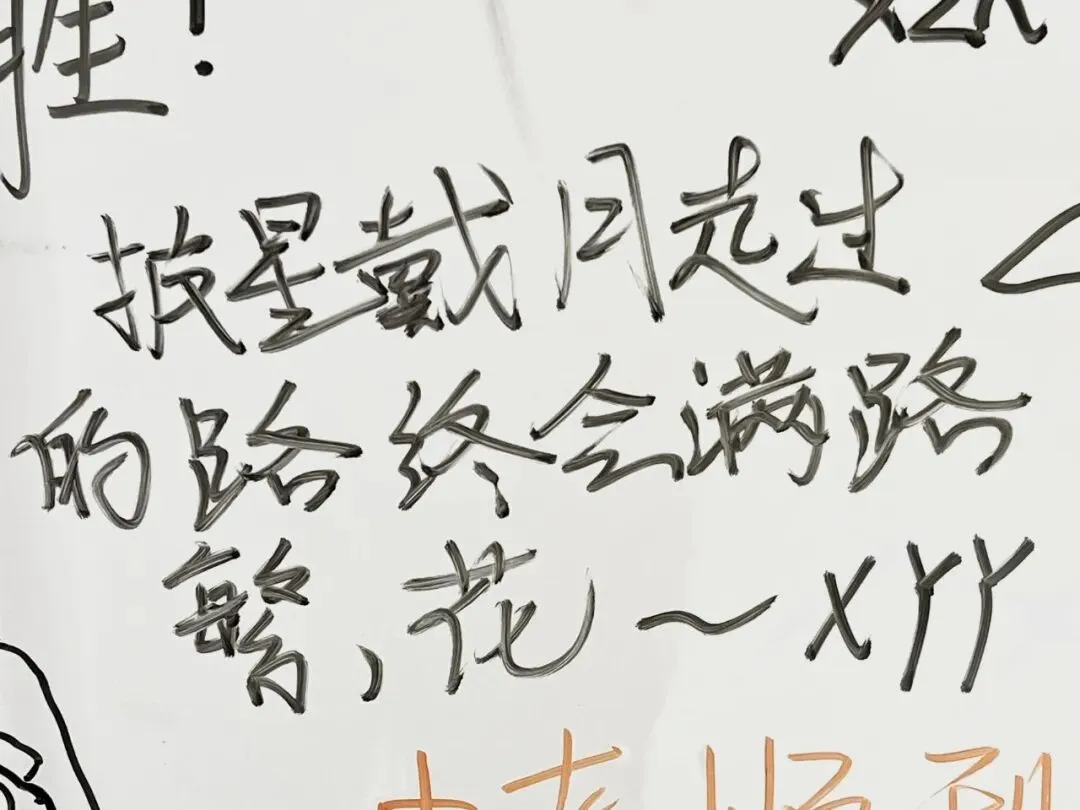 ！
披星戴月走过
的路终会满路
繁花～XYY